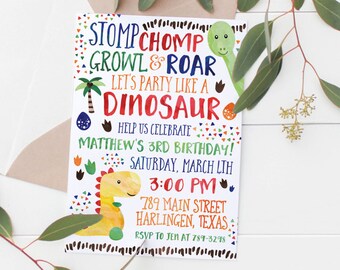 STOMP CHOMP
GROWL & ROAR
LET'S PARTY LIKE A
DINOSAUR
HELP US CELEBRATE
MATTHEW'S 3RD BIRTHDAY!
SATURDAY, MARCH 4TH
3:00 PM
789 MAIN STREET
HARLINGEN, TEXAS
RSVP TO JEN AT 789-3298